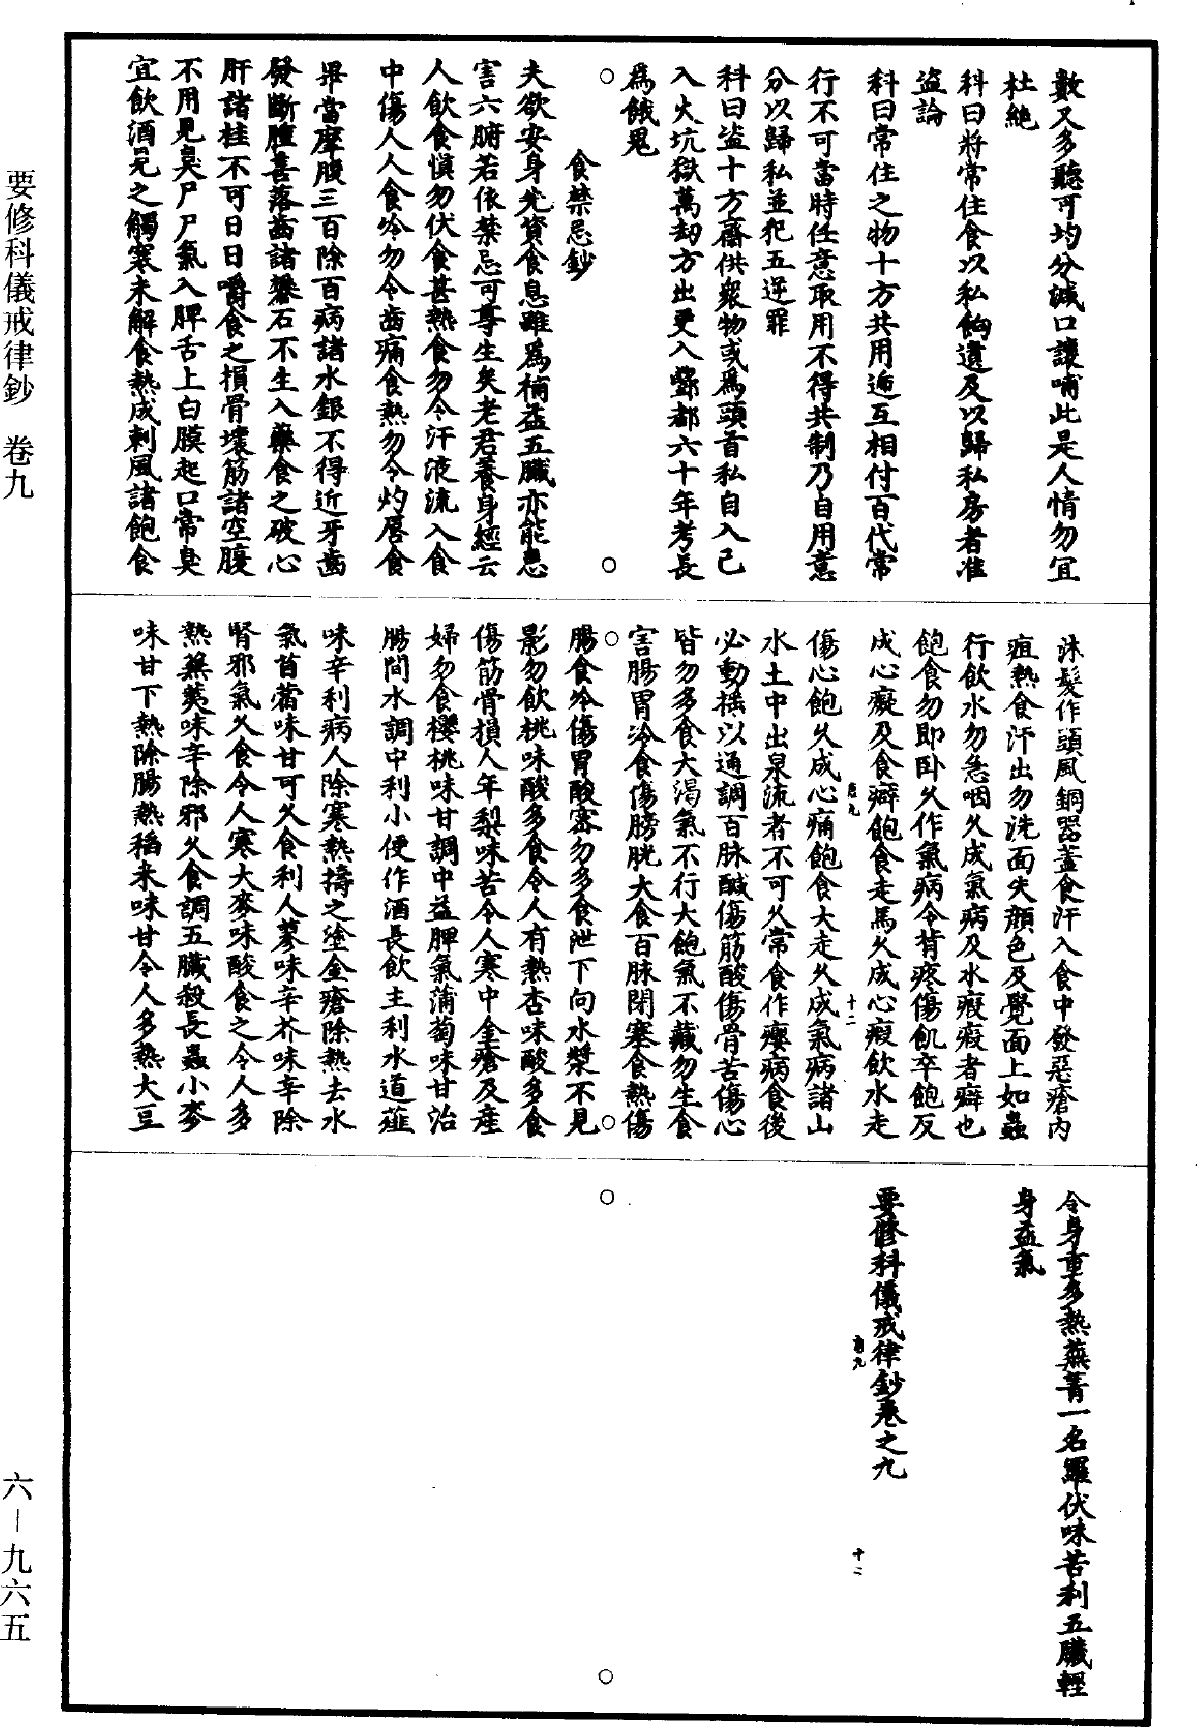 數又多聽可均分減口讓哺此是人情勿宜
杜絕
科曰將常住食以私餉遺及以歸私房者准
盜論
科曰常住之物十方共用遞互相付百代常
行不可當時任意取用不得共制乃自用意
分以歸私並犯五逆罪
科曰盜十方齋供衆物或爲頭首私自入己
入火坑獄萬劫方出更入酆都六十年考長
爲餓鬼
食禁忌鈔
夫欲安身先資食息雖爲補益五臟亦能患
害六腑若依禁忌可尊生矣老君養身經云
人飲食慎勿伏食甚熱食勿令汗液流入食
中傷人人食冷勿令齒痛食熱勿令灼唇食
畢當摩腹三百除百病諸水銀不得近牙齒
發斷腫喜落齒諸礬石不生入藥食之破心
肝諸桂不可日日嚼食之損骨壞筋諸空腹
不用見臭尸尸氣入脾舌上白膜起口常臭
宜飲酒見之觸寒未解食熱成刺風諸飽食
沐髮作頭風銅器蓋食汗入食中發惡瘡內
疽熱食汗出勿洗面失顏色及覺面上如蟲
行飲水勿急咽久成氣病及水瘕瘕者癖也
飽食勿即卧久作氣病令背疼傷飢卒飽反
成心癡及食癖飽食走馬久成心瘕飲水走
傷心飽久成心痛飽食大走久成氣病諸山
水土中出泉流者不可久常食作癭病食後
必動搖以通調百脉鹹傷筋酸傷骨苦傷心
皆勿多食大渴氣不行大飽氣不藏勿生食
害腸胃冷食傷膀胱大食百脉閉塞食熱傷
腸食冷傷胃酸害勿多食泄下向水漿不見
影勿飲桃味酸多食令人有熱杏味酸多食
傷筋骨損人年梨味苦令人寒中金瘡及産
婦勿食櫻桃味甘調中益脾氣蒲萄味甘治
腸間水調中利小便作酒長飲主利水道薤
味辛利病人除寒熱擣之塗金瘡除熱去水
氣苜蓿味甘可久食利人蓼味辛芥味辛除
腎邪氣久食令人寒大麥味酸食之令人多
熱蕪荑味辛除邪久食調五臟殺長蟲小麥
味甘下熱除腸熱稻米味甘令人多熱大豆
令身重多熱蕪菁一名羅伏味苦利五臟輕
身益氣
要修科儀戒律鈔卷之九
要修科儀戒律鈔　卷九
六－九六五
十二
十二